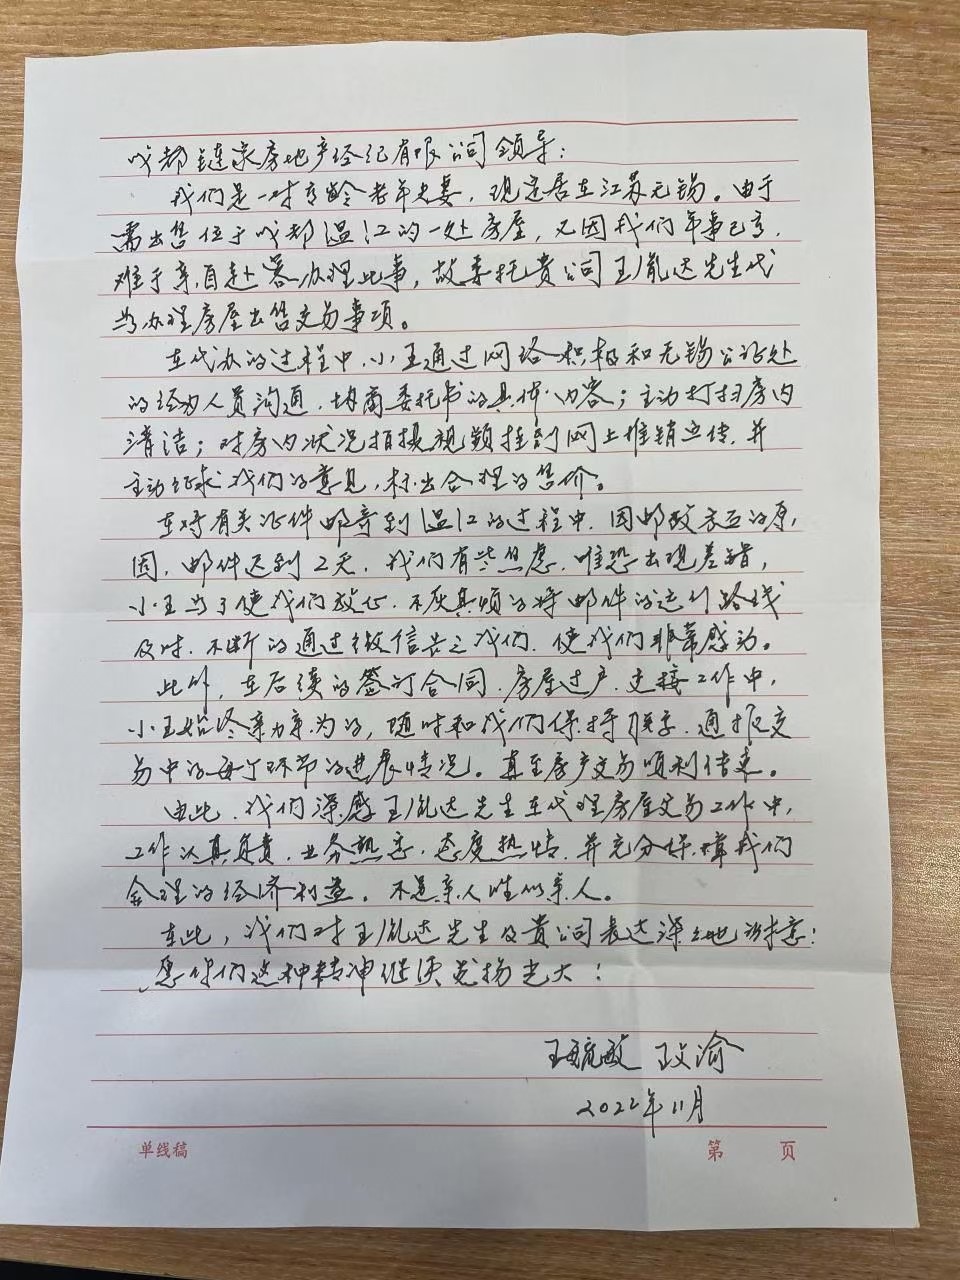 成都链家房地产经纪有限公司领导：
我们是一对高龄老年夫妻，现定居在江苏无锡。由于
需出售位于成都温江的一处房屋，又因我们年事已高，
难于亲自赴蓉办理此事，故委托贵公司王胤达先生代
为办理房屋出售交易事项。
在代办的过程中，小王通过网络积极和无锡公证处
的经办人员沟通，协商委托书的具体内容；主动打扫房内
清洁；对房内状况拍摄视频挂到网上推销宣传，并
主动征求我们的意见，标出合理的售价。
在将有关证件邮寄到温江的过程中，因邮政方面的原
因，邮件迟到2天，我们有些焦虑，唯恐出现差错，
小王为了使我们放心，不厌其烦的将邮件的运行路线
及时、不断的通过微信告之我们，使我们非常感动。
此外，在后续的签订合同、房屋过户、交接工作中，
小王始终亲力亲为的，随时和我们保持联系，通报交
易中的每个环节的进展情况。直至房产交易顺利结束。
由此，我们深感王胤达先生在代理房屋交易工作中，
工作认真负责，业务熟悉，态度热情，并充分保障我们
合理的经济利益，不是亲人胜似亲人。
在此，我们对王胤达先生及贵公司表达深深地谢意！
愿你们这种精神继续发扬光大！
王毓敏 王文渝
2022年11月
单线稿 第 页